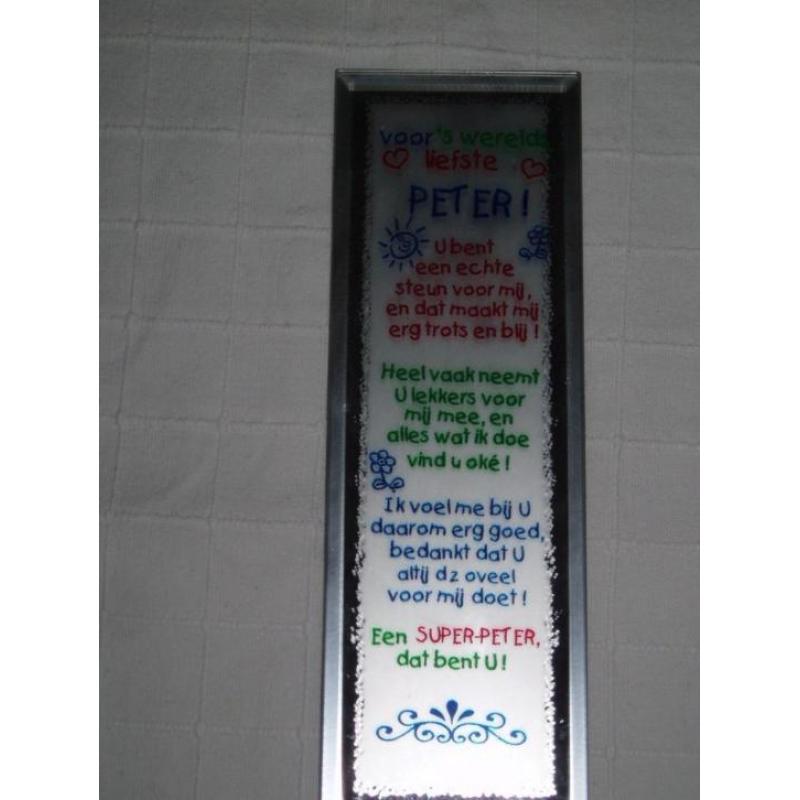 voor 's werelds
liefste
PETER!
U bent
een echte
steun voor mij,
en dat maakt mij
erg trots en blij!
Heel vaak neemt
U lekkers voor
mij mee, en
alles wat ik doe
vind u oké!
Ik voel me bij U
daarom erg goed,
bedankt dat U
altij dz oveel
voor mij doet!
Een SUPER-PETER,
dat bent U!